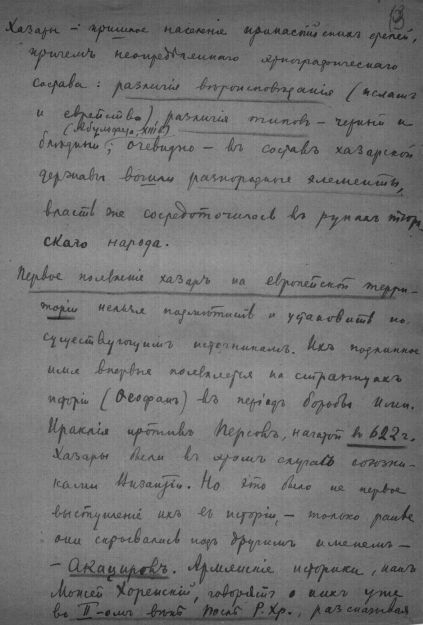 3
Хазары – пришлое населеніе прикаспійскихъ степей,
причемъ неопредѣленнаго этнографическаго
состава: различія вѣроисповѣданія (исламъ
и еврейство) различія типовъ – черный и
(Абульфеда, XIII в)
блѣдный; очевидно – въ составъ хазарской
державы вошли разнородные элементы,
власть же сосредоточилась въ рукахъ
скаго народа.
Первое появленіе хазаръ на европейской терри-
торіи нельзя подмѣтить и установить по
существующимъ источникамъ. Ихъ подлинное
имя впервые появляется на страницахъ
исторіи (Ѳеофанъ) – въ періодъ борьбы Имп.
Ираклія противъ Персовъ, начатой въ 622 г.
Хазары были въ этомъ случаѣ союзни-
ками Византіи. Но это было не первое
выступленіе ихъ въ исторіи, – только ранѣе
они скрывались подъ другимъ именемъ –
– Акацировъ. Армянскіе историки, какъ
Моисей Хоренскій, говорятъ о нихъ уже
во II-омъ вѣкѣ послѣ Р. Хр., разсказывая